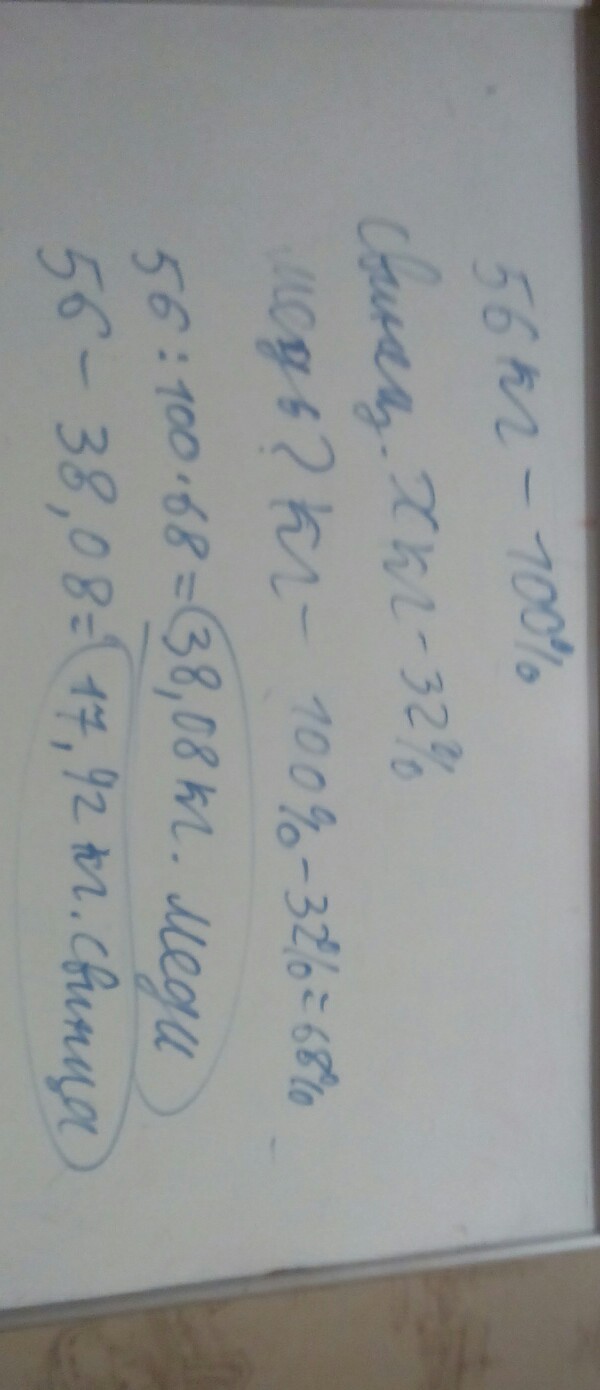 56 кг - 100%
свинец. х кг - 32%
медь ? кг - 100% - 32% = 68%
56 : 100 · 68 = 38,08 кг. меди
56 - 38,08 = 17,92 кг. свинца